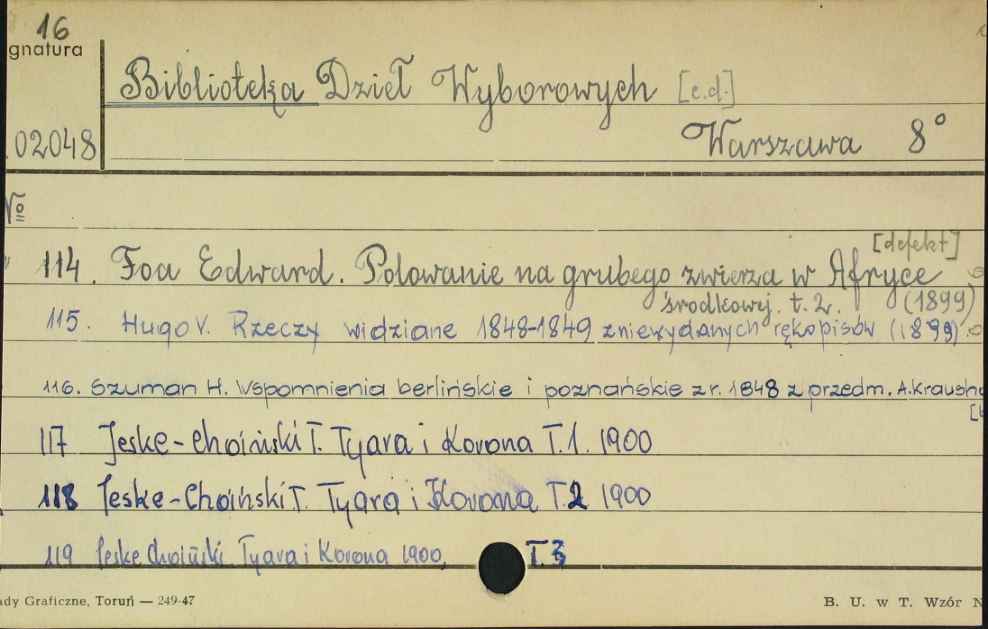 16
gnatura
Biblioteka Dzieł Wyborowych [c.d.]
02048
Warszawa 8°
№
[defekt]
114. Foa Edward. Polowanie na grubego zwierza w Afryce
środkowej. t. 2. (1899)
115. Hugo V. Rzeczy widziane 1848-1849 z niewydanych rękopisów (1899).
116. Szuman H. Wspomnienia berlińskie i poznańskie z r. 1848 z przedm. A. Krausha
117 Jeske-Choiński T. Tyara i Korona T.1. 1900
118 Jeske-Choiński T. Tyara i Korona T.2 1900
119 Jeske Choiński. Tyara i Korona 1900, T.3
ady Graficzne, Toruń — 249-47
B. U. w T. Wzór N